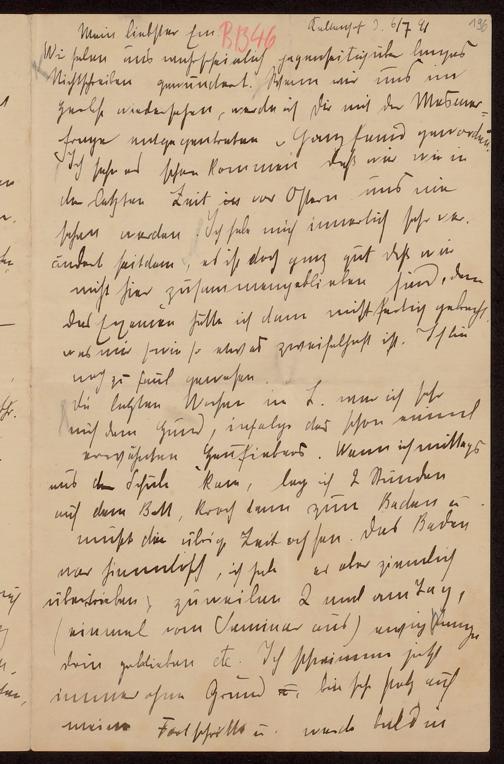 Mein liebster Em
RB46
Kaltenhof d. 6/7 21
196
Wir haben uns wahrscheinlich gegenseitig über langes
Nichtschreiben gewundert. Wenn wir uns im
wiedersehen, werde ich Dir mit der
frage entgegentreten „ Ganz fremd geworden.“
Ich sehe es schon kommen daß wir wie in
der letzten Zeit vor Ostern uns nie
sehen werden. Ich habe mich innerlich sehr ver-
ändert seitdem, es ist doch ganz gut daß wir
nicht hier zusammengeblieben sind, denn
das Examen hätte ich dann nicht fertig gebracht,
was mir sowieso etwas zweifelhaft ist. Ich bin
noch zu faul gewesen.
Die letzten Wochen in L. war ich sehr
auf dem Hund, infolge des schon einmal
erwähnten Heufiebers. Wenn ich mittags
aus der Schule kam, lag ich 2 Stunden
auf dem Bett, kroch dann zum Baden u.
mußte die übrige Zeit ochsen. Das Baden
war himmlisch, ich habe es aber ziemlich
übertrieben, zuweilen 2 mal am Tag,
(einmal vom Seminar aus) ewig lange
drin geblieben etc. Ich schwimme jetzt
immer ohne Grund, bin sehr stolz auf
meine Fortschritte u. werde bald in